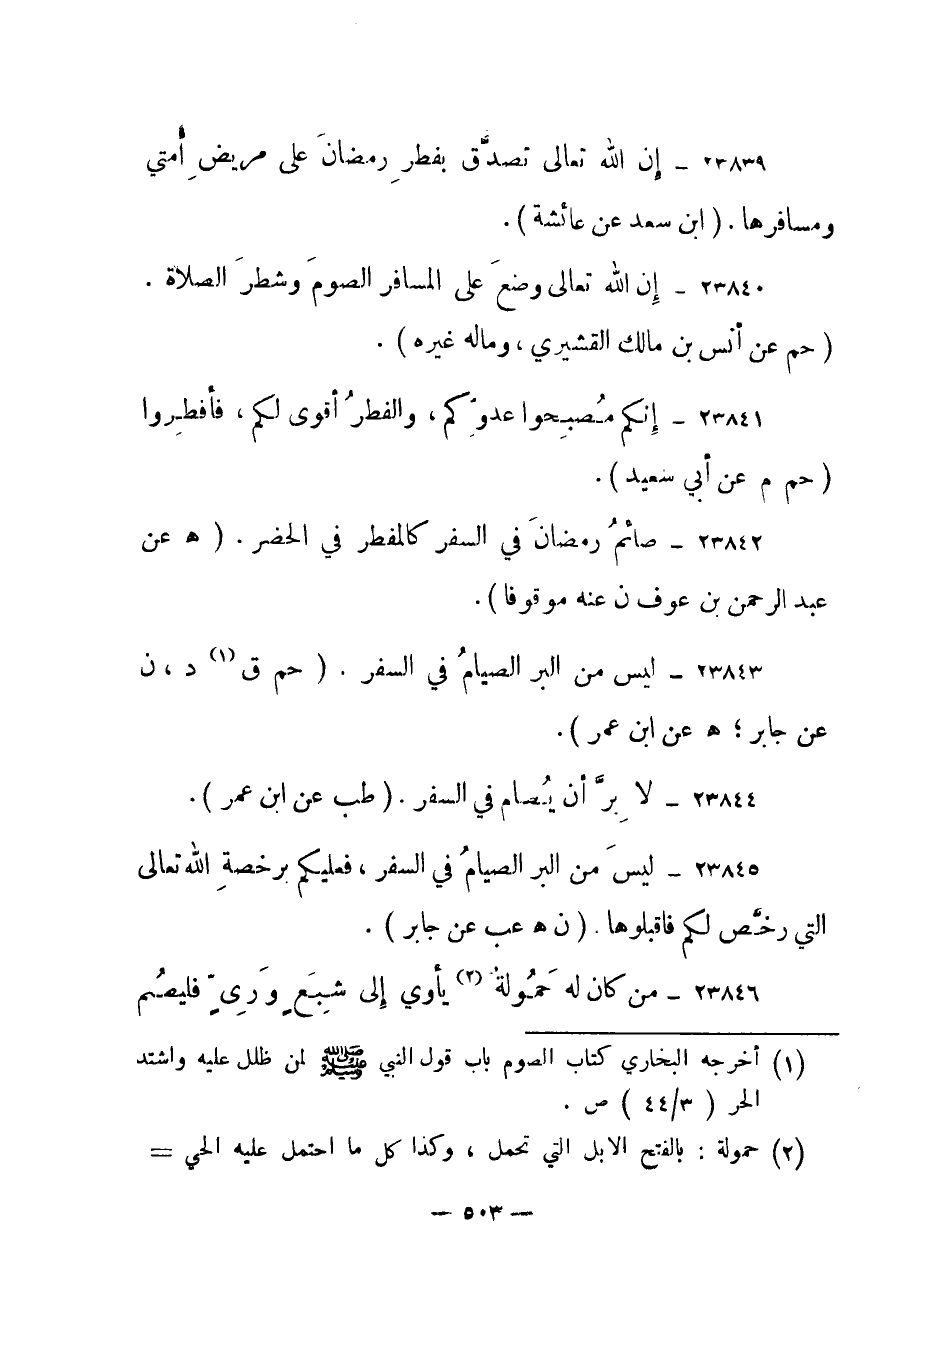 ٢٣٨٣٩ ـ إن الله تعالى تصدَّق بفطرِ رمضانَ على مريضِ أُمتي
ومسافرها . ( ابن سعد عن عائشة ) .
٢٣٨٤٠ ـ إن الله تعالى وضعَ على المسافر الصومَ وشطرَ الصلاة .
( حم عن أنس بن مالك القشيري ، وماله غيره ) .
٢٣٨٤١ ـ إنكم مُصبِحوا عدوِّكم ، والفطرُ أقوى لكم ، فأفطِروا
( حم م عن أبي سعيد ) .
٢٣٨٤٢ ـ صائمُ رمضانَ في السفر كالمفطر في الحضر . ( ه عن
عبد الرحمن بن عوف ن عنه موقوفا ) .
٢٣٨٤٣ ـ ليس من البر الصيامُ في السفر . ( حم ق (١) د ، ن
عن جابر ؛ ه عن ابن عمر ) .
٢٣٨٤٤ ـ لا بِرَّ أن يُصام في السفر . ( طب عن ابن عمر ) .
٢٣٨٤٥ ـ ليسَ من البر الصيامُ في السفر ، فعليكم برخصةِ الله تعالى
التي رخَّص لكم فاقبلوها . ( ن ه عب عن جابر ) .
٢٣٨٤٦ ـ من كان له حَمُولةٌ (٢) يأوي إلى شِبَعٍ وَرِيٍّ فليصُم
(١) أخرجه البخاري كتاب الصوم باب قول النبي ﷺ لمن ظلل عليه واشتد
الحر ( ٣/٤٤ ) ص .
(٢) حمولة : بالفتح الابل التي تحمل ، وكذا كل ما احتمل عليه الحي =
— ٥٠٣ —